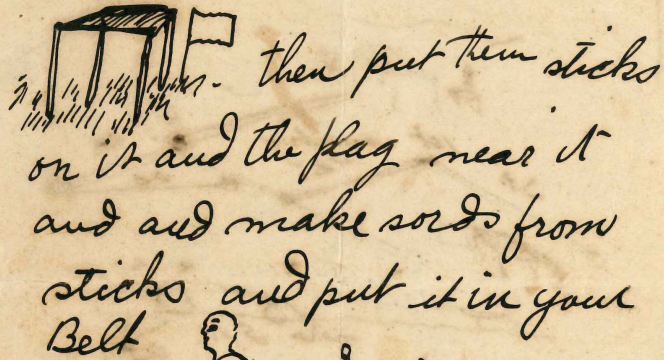 then put them sticks
on it and the flag near it
and and make sords from
sticks and put it in your
Belt